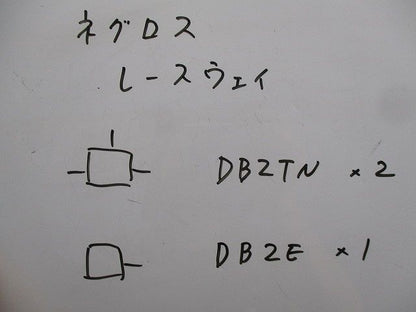 ネグロス
レースウェイ
DB2TN ×2
DB2E ×1